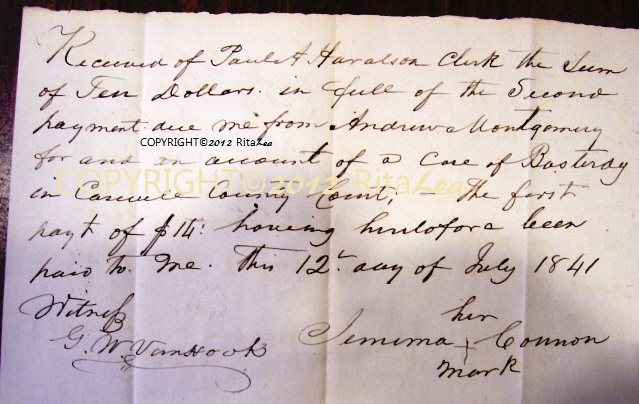 Received of Paul A Haralson Clerk the Sum
of Ten Dollars. in full of the Second
payment due me from Andrew Montgomery
COPYRIGHT©2012 RitaLea
for and on account of a Case of Basterdy
COPYRIGHT©2012 RitaLea
in Caswell County Court; – The first
payt of $14: having heretofore been
paid to me. This 12t. day of July 1841
Witness
her
G. W. VanHook
Jemima + Connon
mark